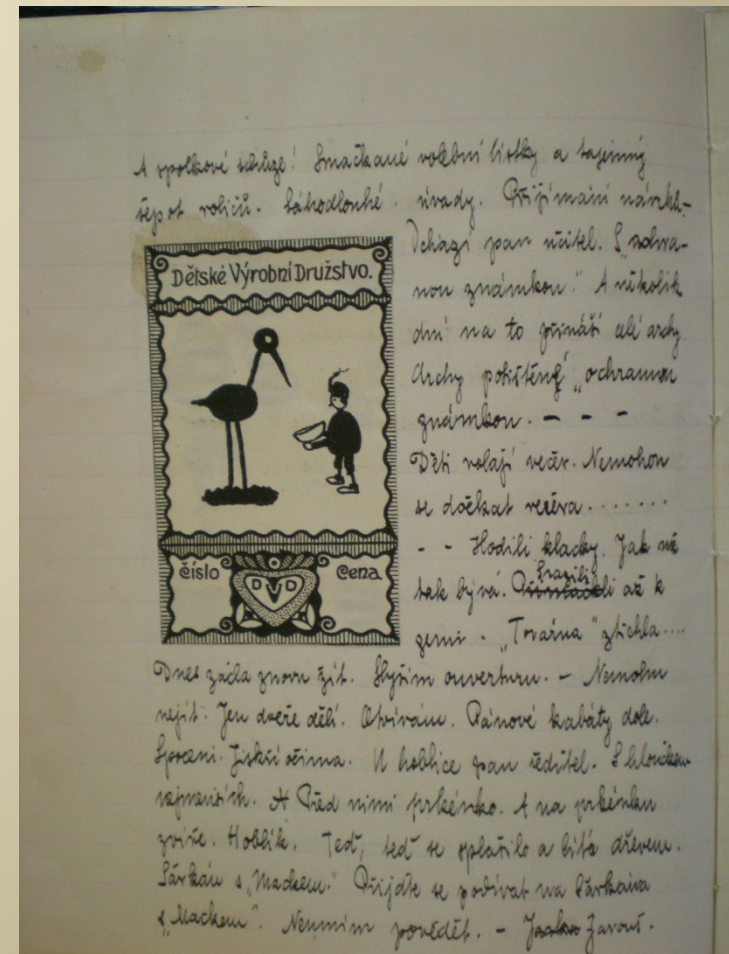 A spolkové schůze! Smačkané volební lístky a tajemný
šepot voličů. Sáhodlouhé. úvady. Přijímání návrhů.
Dětské Výrobní Družstvo.
číslo
DVD
Cena
Ochází pan učitel. S „ochra-
nou známkou." A několik
dní na to přináší celé archy
Archy potištěné „ochrannou
známkou. - - -
Děti volají večer. Nemohou
se dočkat večera.......
- - Hodili klacky. Jak už
tak bývá. Srazili až k
zemi. „Továrna" ztichla....
Dnes začla znovu žít. Slyším ouverturu. - Nemohu
nejít. Jen dveře dělí. Otvírám. Pánové kabáty dole.
Spoceni. Jiskří očima. U hoblice pan ředitel. S hloučkem
nejmenších. Před nimi prkénko. A na prkénku
zvíře. Hoblík. Teď, teď se splašilo a lítá dřevem.
Šárkán s „Mackem." Přijďte se podívat na Šárkána
s „Mackem". Neumím povědět. - Zavout.